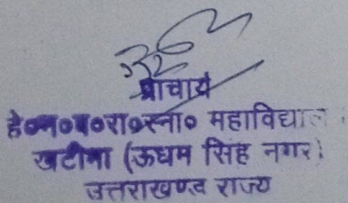 प्राचार्य
हे०न०ब०रा०स्ना० महाविद्याल
खटीमा (ऊधम सिंह नगर)
उत्तराखण्ड राज्य